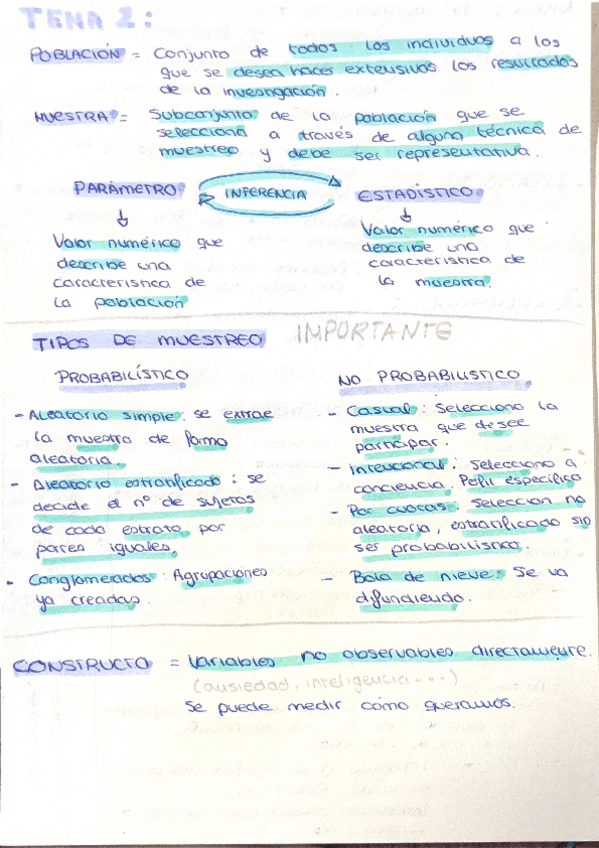 TEMA 2:
POBLACIÓN = Conjunto de todos los individuos a los
que se desea hacer extensivos los resultados
de la investigación.
MUESTRA = Subconjunto de la población que se
selecciona a través de alguna técnica de
muestreo y debe ser representativa.
PARÁMETRO INFERENCIA ESTADÍSTICO
Valor numérico que
describe una
característica de
la población
Valor numérico que
describe una
característica de
la muestra.
TIPOS DE MUESTREO IMPORTANTE
PROBABILÍSTICO
- Aleatorio simple: se extrae
la muestra de forma
aleatoria.
- Aleatorio estratificado: se
decide el nº de sujetos
de cada estrato por
partes iguales.
- Conglomerados: Agrupaciones
ya creadas.
NO PROBABILÍSTICO
- Casual: Selecciono la
muestra que desee
participar.
- Intencional: Selecciono a
conciencia. Perfil específico
- Por cuotas: Selección no
aleatoria, estratificado sin
ser probabilística.
- Bola de nieve: Se va
difundiendo.
CONSTRUCTO = Variables no observables directamente.
(ansiedad, inteligencia...)
Se puede medir como queramos.